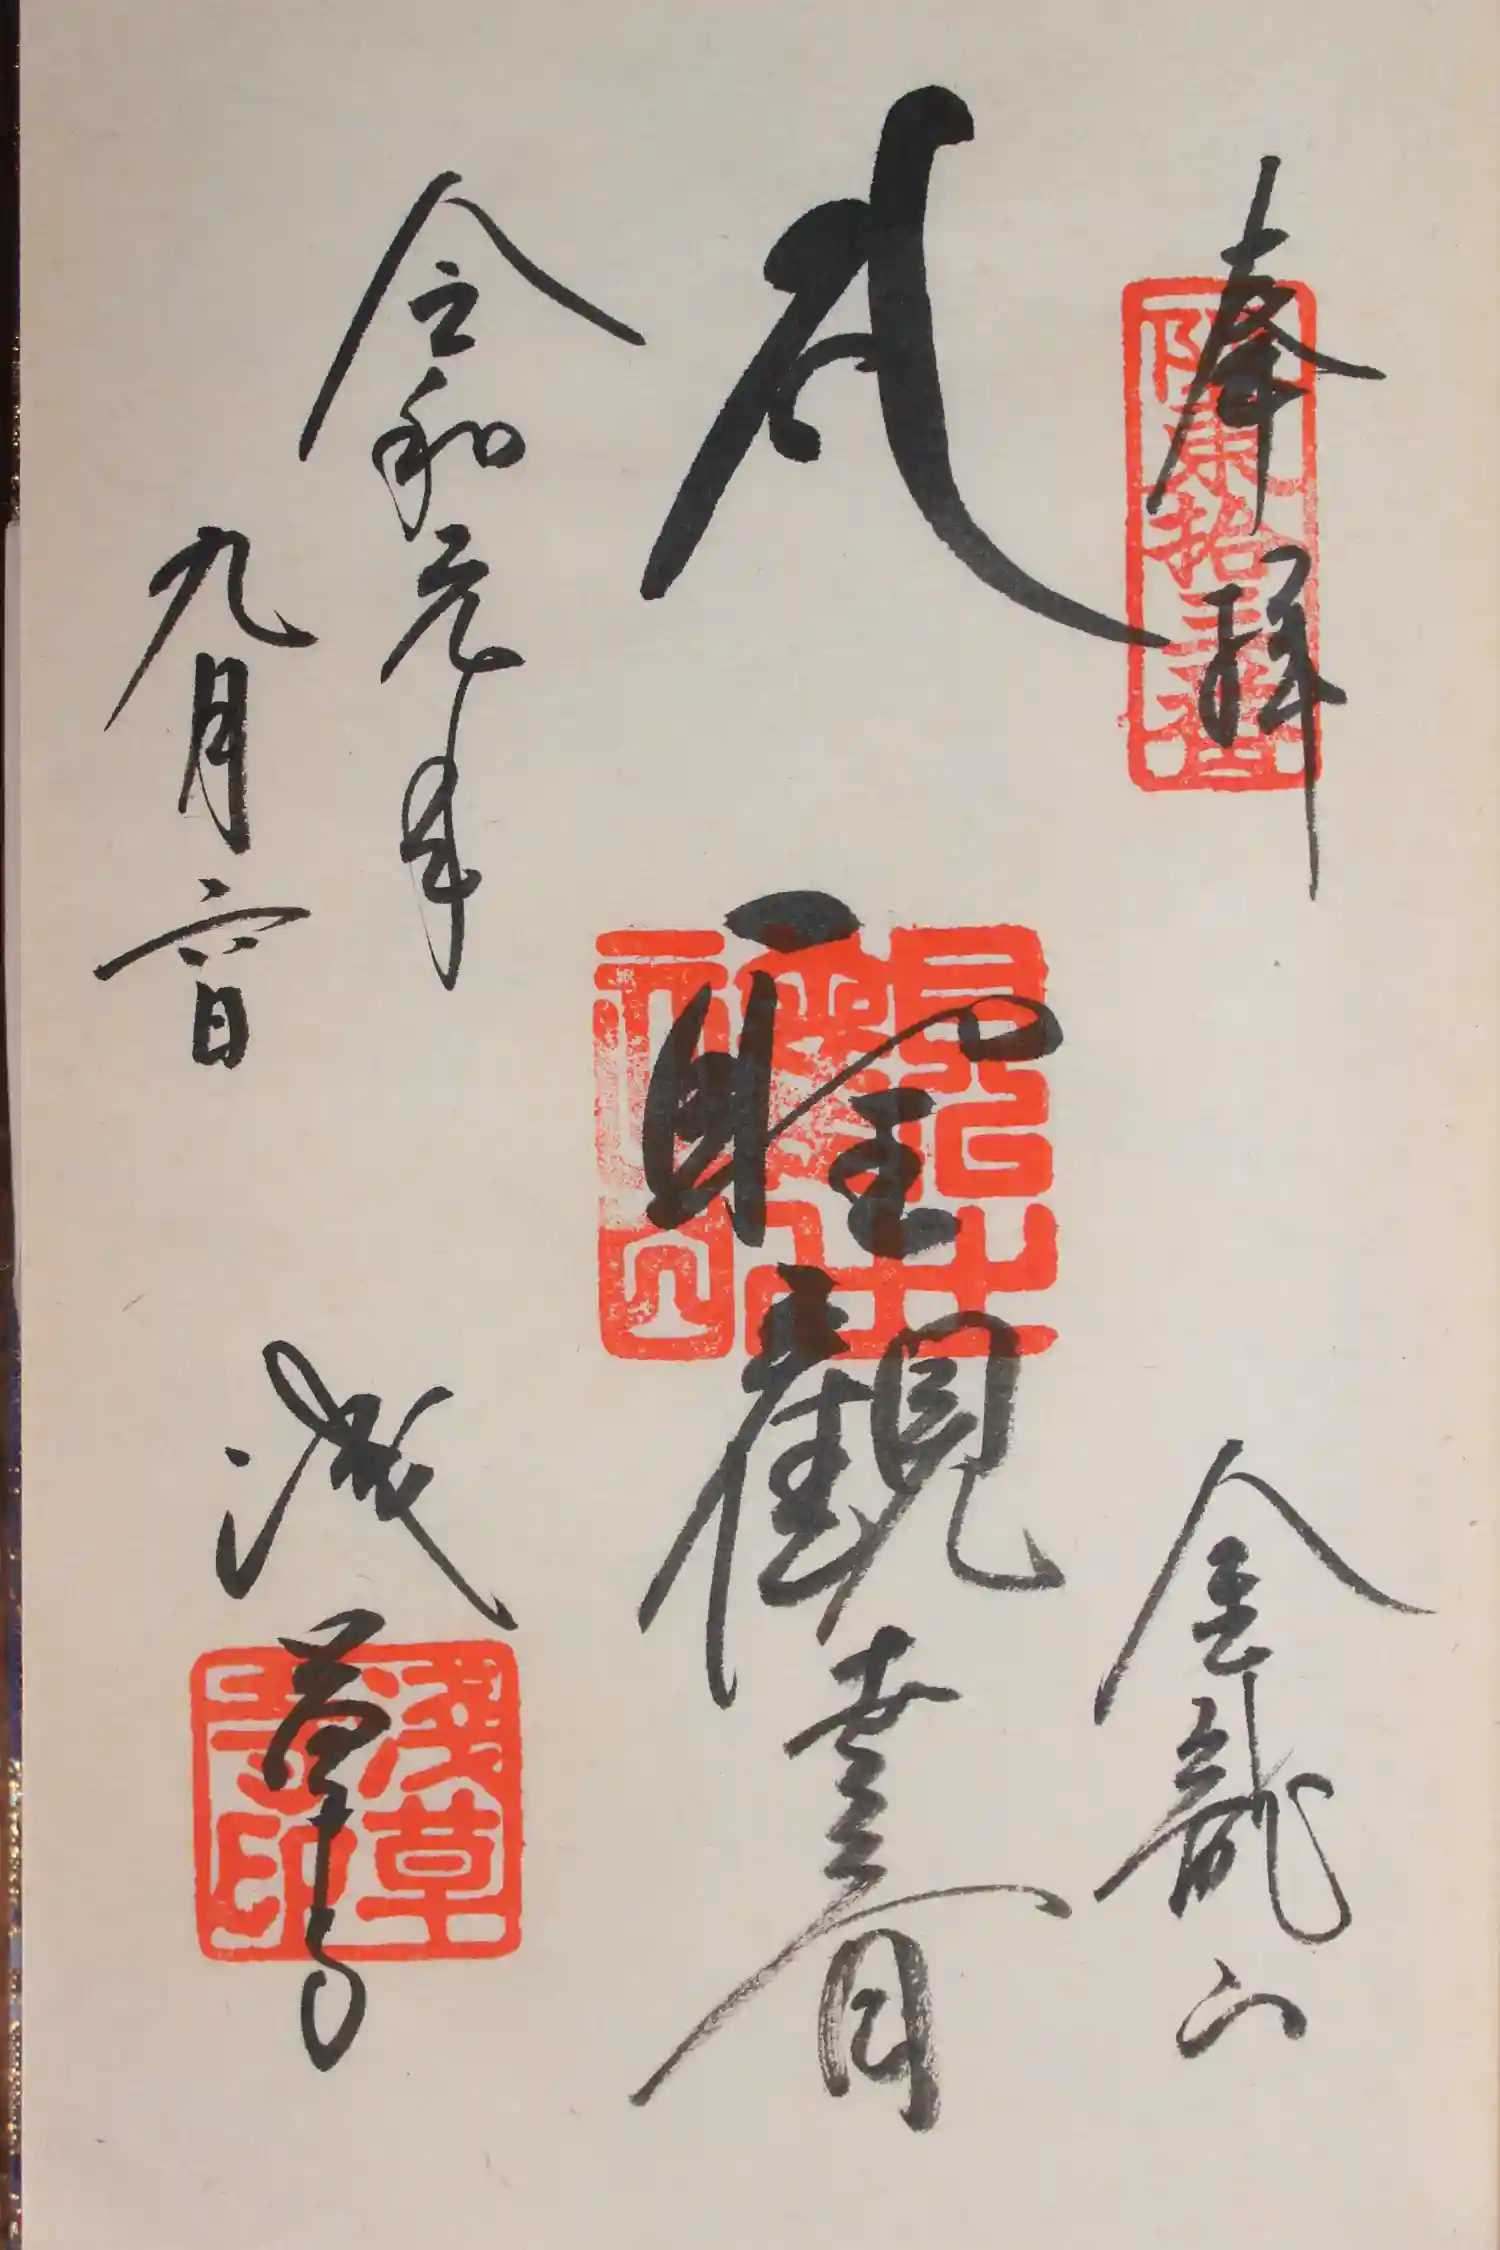 奉拝
阪東拾三番
金龍山
聖觀世音
令和元年
九月六日
浅草寺
浅草寺印